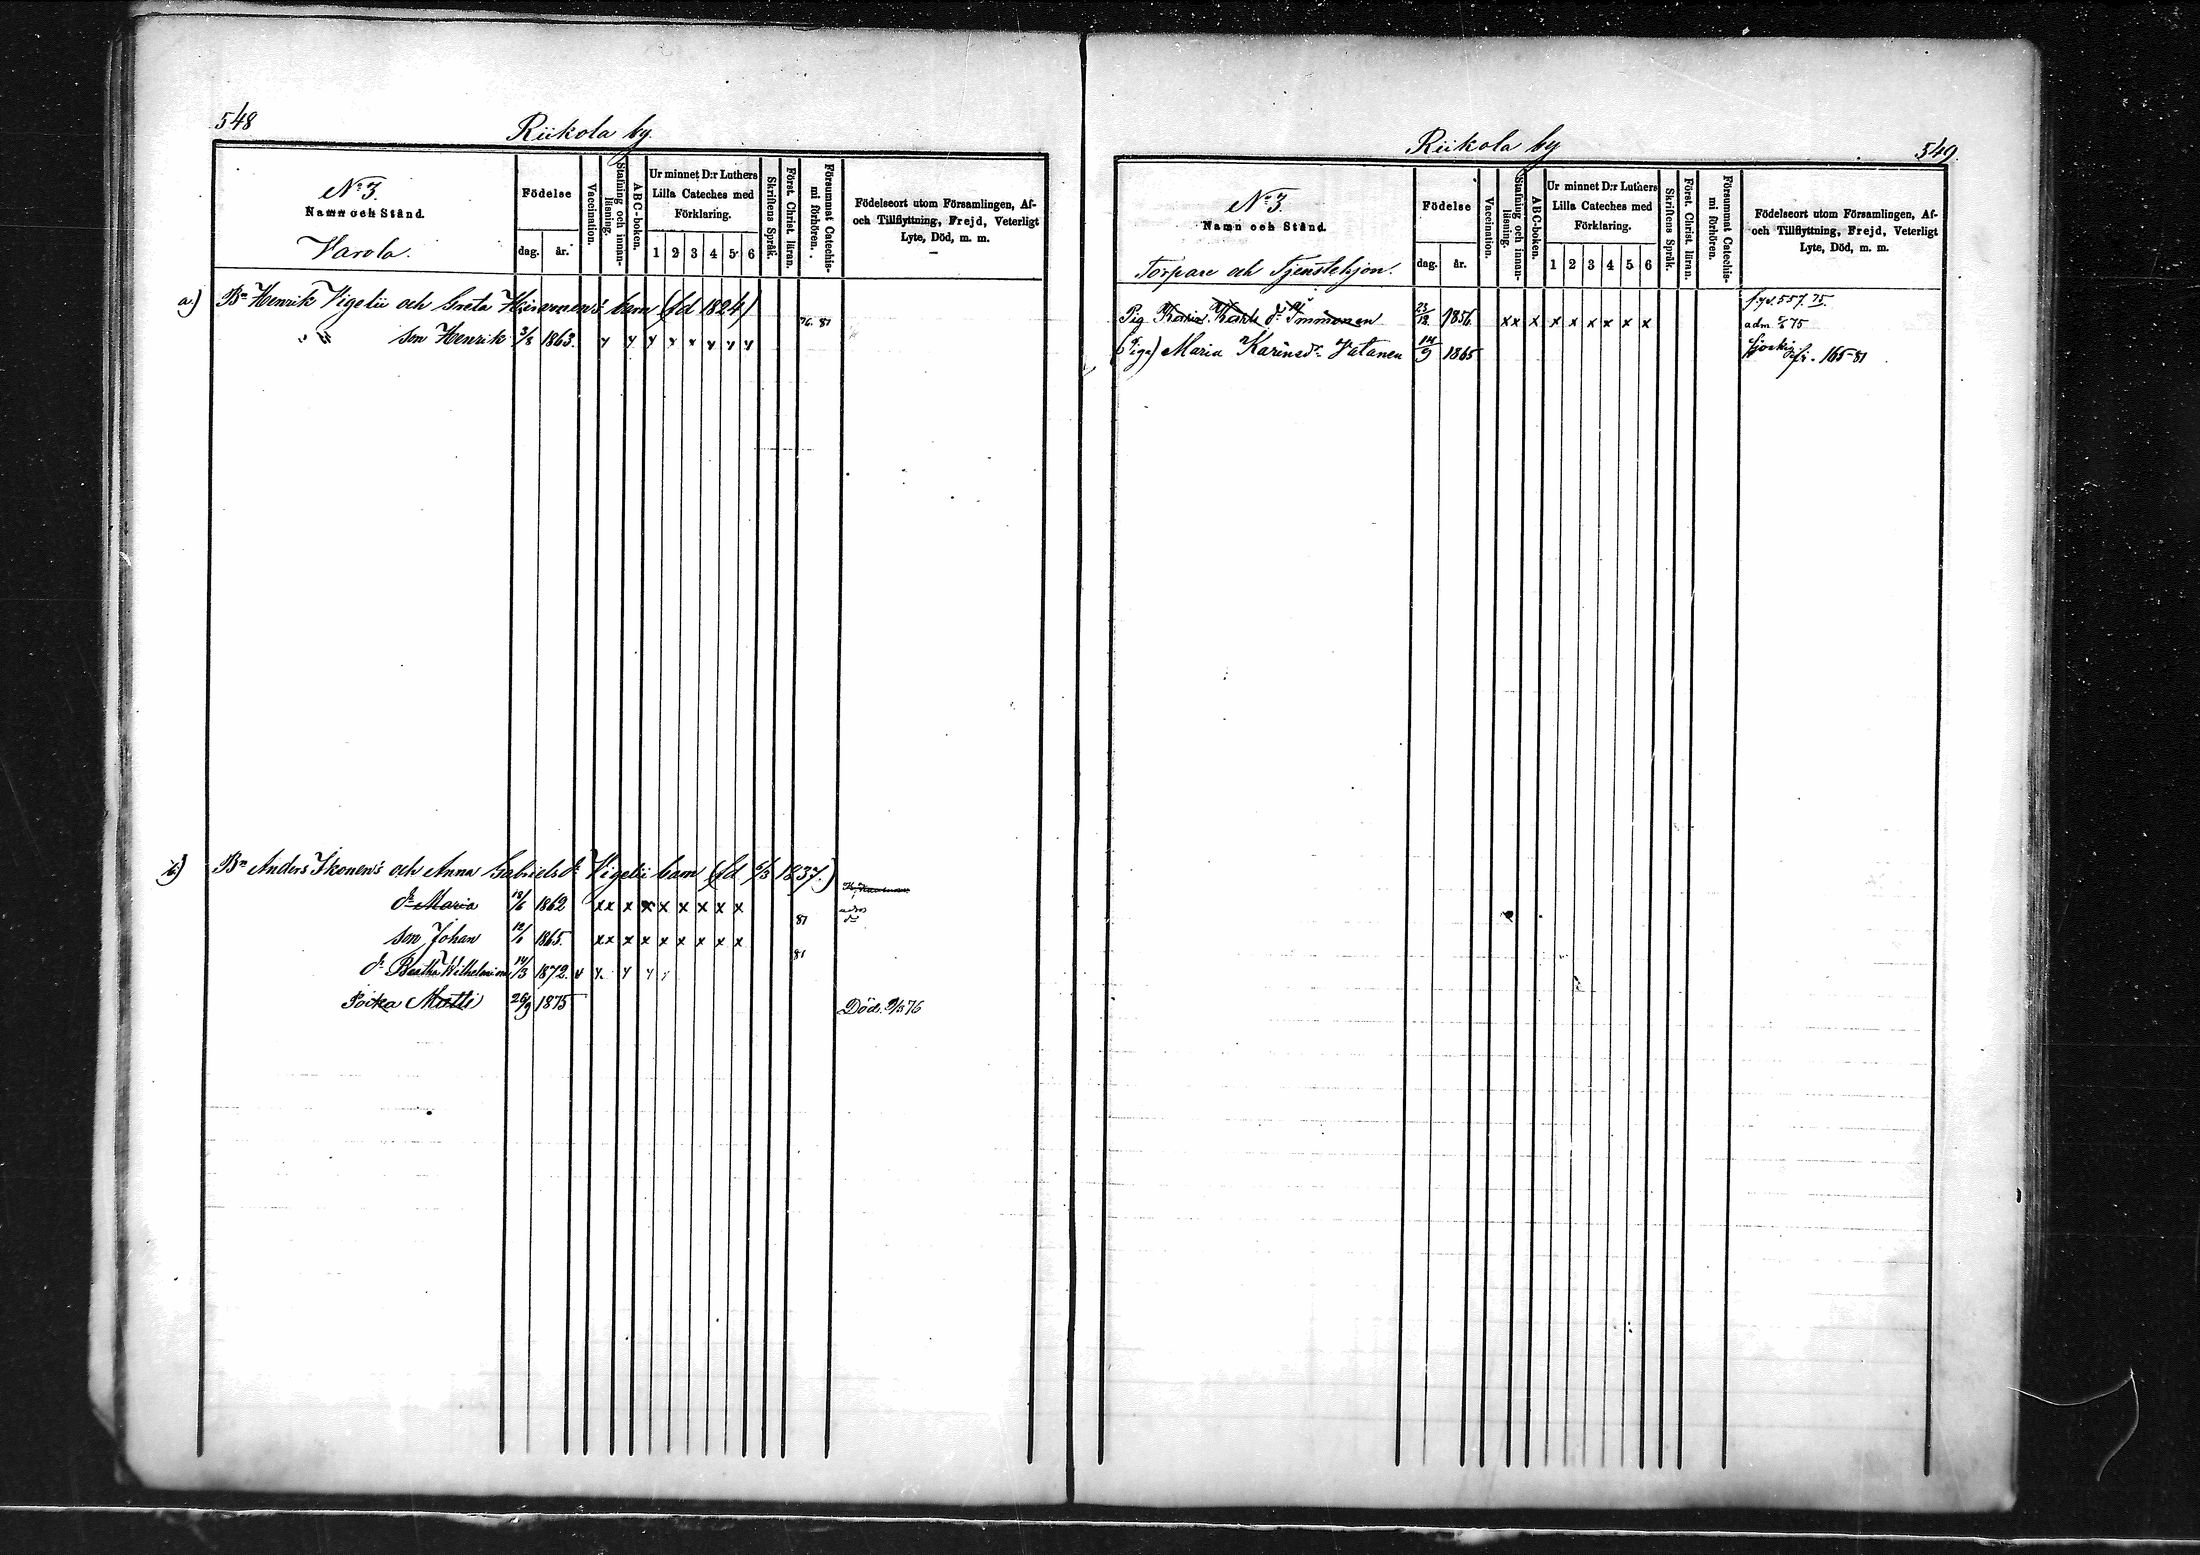 548
Riikola by.
No 3.
Namn och Stånd.
Varola.
Födelse
dag. år.
Vaccination.
Stafning och innanläsning.
ABC-boken.
Ur minnet D:r Luthers
Lilla Cateches med
Förklaring.
1 2 3 4 5 6
Skriftens Språk.
Först. Christ. läran.
Försummat Catechismi förhören.
Födelseort utom Församlingen, Af-
och Tillflyttning, Frejd, Veterligt
Lyte, Död, m. m.
a.) Bn Henrik Vigelii och Greta barn (fd 1824)
son Henrik 3/8 1863. 76. 81
b.) Bn Anders Ikonen's och Anna Gabrielsdr Vigelii barn (fd 6/3 1837.)
dr Maria 18/6 1862 x x x x x x x x x
son Johan 12/1 1865. x x x x x x x x x 81
dr Bertha Wilhelmina 14/3 1872. 81
Poika Matti 26/9 1875 Död. 2/5 76
Riikola by
549.
No 3.
Namn och Stånd.
Torpare och Tjenstehjon.
Födelse
dag. år.
Vaccination.
Stafning och innanläsning.
ABC-boken.
Ur minnet D:r Luthers
Lilla Cateches med
Förklaring.
1 2 3 4 5 6
Skriftens Språk.
Först. Christ. läran.
Försummat Catechismi förhören.
Födelseort utom Församlingen, Af-
och Tillflyttning, Frejd, Veterligt
Lyte, Död, m. m.
557. 75.
Pig dr Immonen 23/12 1856 x x x x x x x x x adm 75
(Piga) Maria Karinsdr Vatanen 14/9 1865 165-81